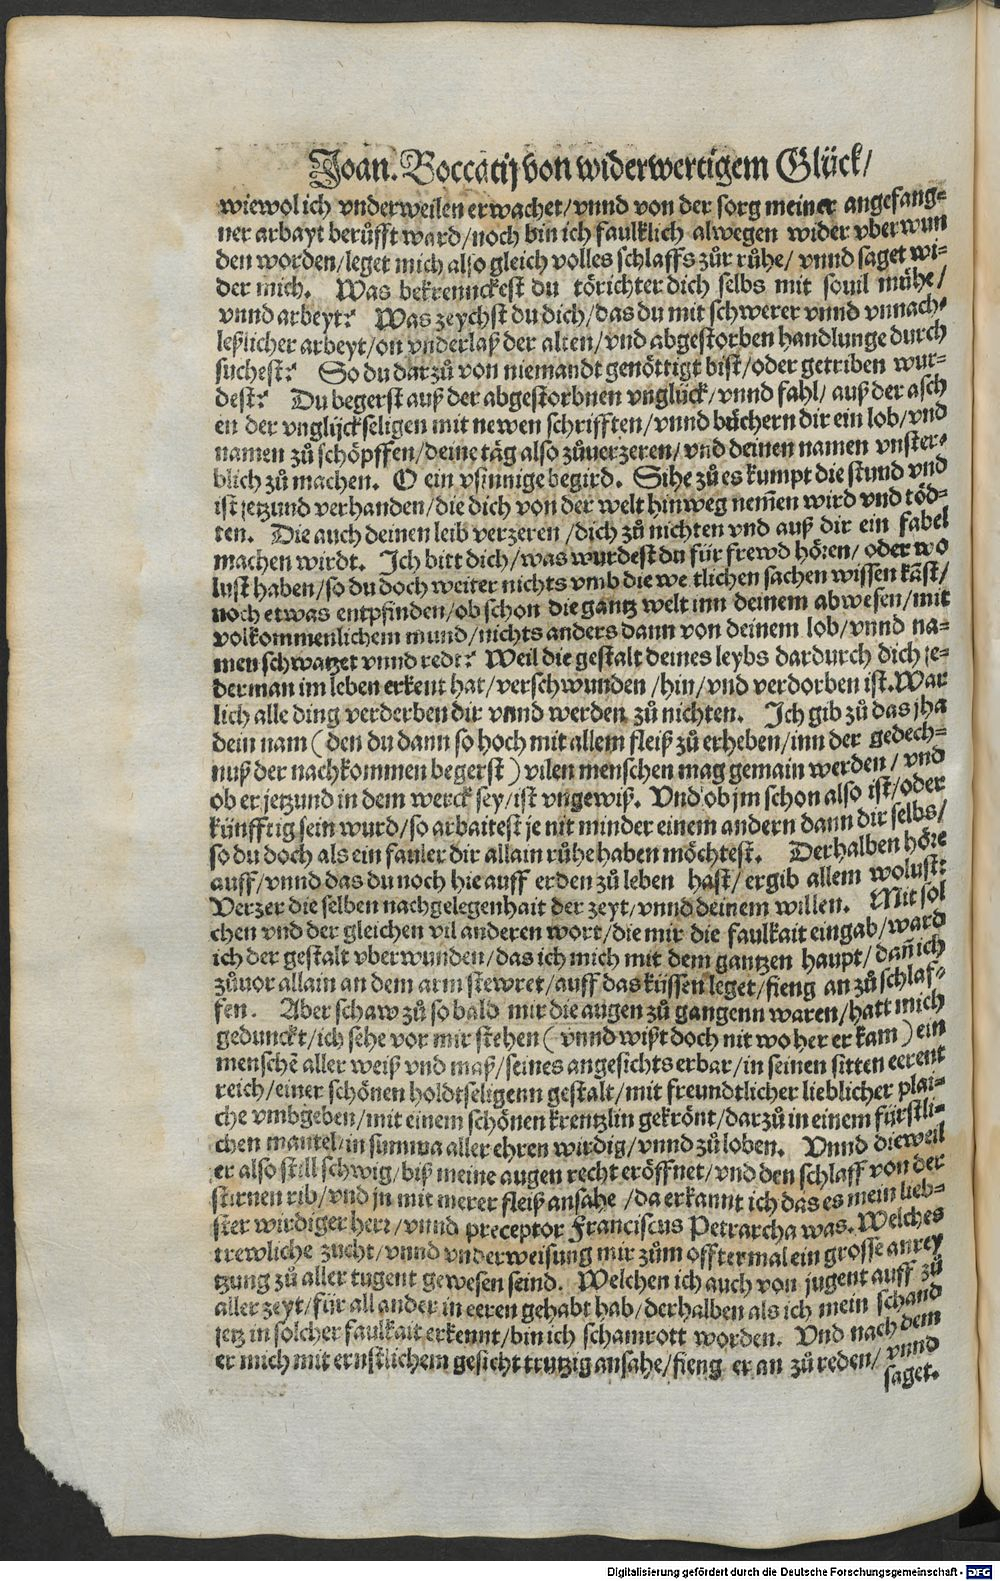 Joan. Boccatij von widerwertigem Glück/
wiewol ich vnderweilen erwachet/vnnd von der sorg meiner angefang=
ner arbayt berůfft ward/noch bin ich faulklich alwegen wider vberwun
den worden/leget mich also gleich volles schlaffs zůr růhe/ vnnd saget wi=
der mich. Was bekrennckest du törichter dich selbs mit souil mühe/
vnnd arbeyt? Was zeychst du dich/das du mit schwerer vnnd vnnach=
leßlicher arbeyt/on vnderlaß der alten/vnd abgestorben handlunge durch
suchest? So du darzů von niemandt genöttigt bist/oder getriben wur=
dest? Du begerst auß der abgestorbnen vnglück/vnnd fahl/ auß der asch
en der vnglijckseligen mit newen schrifften/vnnd büchern dir ein lob/vnd
namen zů schöpffen/deine täg also zůuerzeren/vnd deinen namen vnster=
blich zů machen. O ein vsinnige begird. Sihe zů es kumpt die stund vnd
ist jetzund verhanden/die dich von der welt hinweg nem̃en wird vnd töd=
ten. Die auch deinen leib verzeren /dich zů nichten vnd auß dir ein fabel
machen wirdt. Ich bitt dich/was wurdest du für frewd hören/ oder wo
lust haben/so du doch weiter nichts vmb die we tlichen sachen wissen kãst/
noch etwas entpfinden/ob schon die gantz welt inn deinem abwesen/mit
volkommenlichem mund/nichts anders dann von deinem lob/vnnd na=
men schwatzet vnnd redt? Weil die gestalt deines leybs dardurch dich je=
derman im leben erkent hat/verschwunden /hin/vnd verdorben ist. War
lich alle ding verderben dir vnnd werden zů nichten. Ich gib zů das jha
dein nam (den du dann so hoch mit allem fleiß zů erheben/inn der gedech=
nuß der nachkommen begerst) vilen menschen mag gemain werden/ vnd
ob er jetzund in dem werck sey/ist vngewiß. Vnd ob jm schon also ist/oder
künfftig sein wurd/so arbaitest je nit minder einem andern dann dir selbs/
so du doch als ein fauler dir allain růhe haben möchtest. Derhalben höre
auff/vnnd das du noch hie auff erden zů leben hast/ ergib allem wolust:
Verzer die selben nach gelegenhait der zeyt/vnnd deinem willen. Mit sol
chen vnd der gleichen vil anderen wort/die mir die faulkait eingab/ward
ich der gestalt vberwunden/das ich mich mit dem gantzen haupt/dañ ich
zůuor allain an dem arm stewret/auff das küssen leget/fieng an zů schlaf=
fen. Aber schaw zů so bald mir die augen zů gangenn waren/hatt mich
gedunckt/ich sehe vor mir stehen (vnnd wißt doch nit wo her er kam) ein
menschẽ aller weiß vnd maß/seines angesichts erbar/in seinen sitten eerent
reich/einer schönen holdtseligenn gestalt/mit freundtlicher lieblicher plai=
che vmbgeben/mit einem schönen krentzlin gekrönt/darzů in einem fürstli=
chen mantel/in summa aller ehren wirdig/vnnd zů loben. Vnnd dieweil
er also still schwig/biß meine augen recht eröffnet/vnd den schlaff von der
stirnen rib/vnd jn mit merer fleiß ansahe /da erkannt ich das es mein lieb=
ster wirdiger herr/vnnd preceptor Franciscus Petrarcha was. Welches
trewliche zucht/vnnd vnderweisung mir zům offtermal ein grosse anrey
tzung zů aller tugent gewesen seind. Welchen ich auch von jugent auff zů
aller zeyt/für all ander in eeren gehabt hab/derhalben als ich mein schand
jetz in solcher faulkait erkennt/bin ich schamrott worden. Vnd nach dem
er mich mit ernstlichem gesicht trutzig ansahe/fieng er an zů reden/ vnnd
saget.
Digitalisierung gefördert durch die Deutsche Forschungsgemeinschaft - DFG